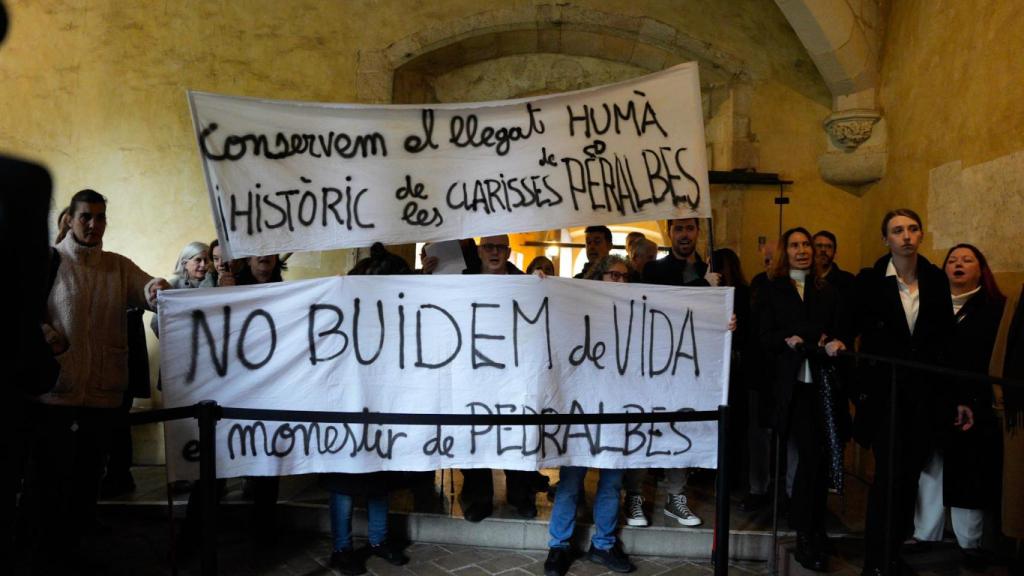 Conservem el llegat HUMÀ
i HISTÒRIC de les CLARISSES de PEDRALBES
NO BUIDEM de VIDA
el monestir de PEDRALBES